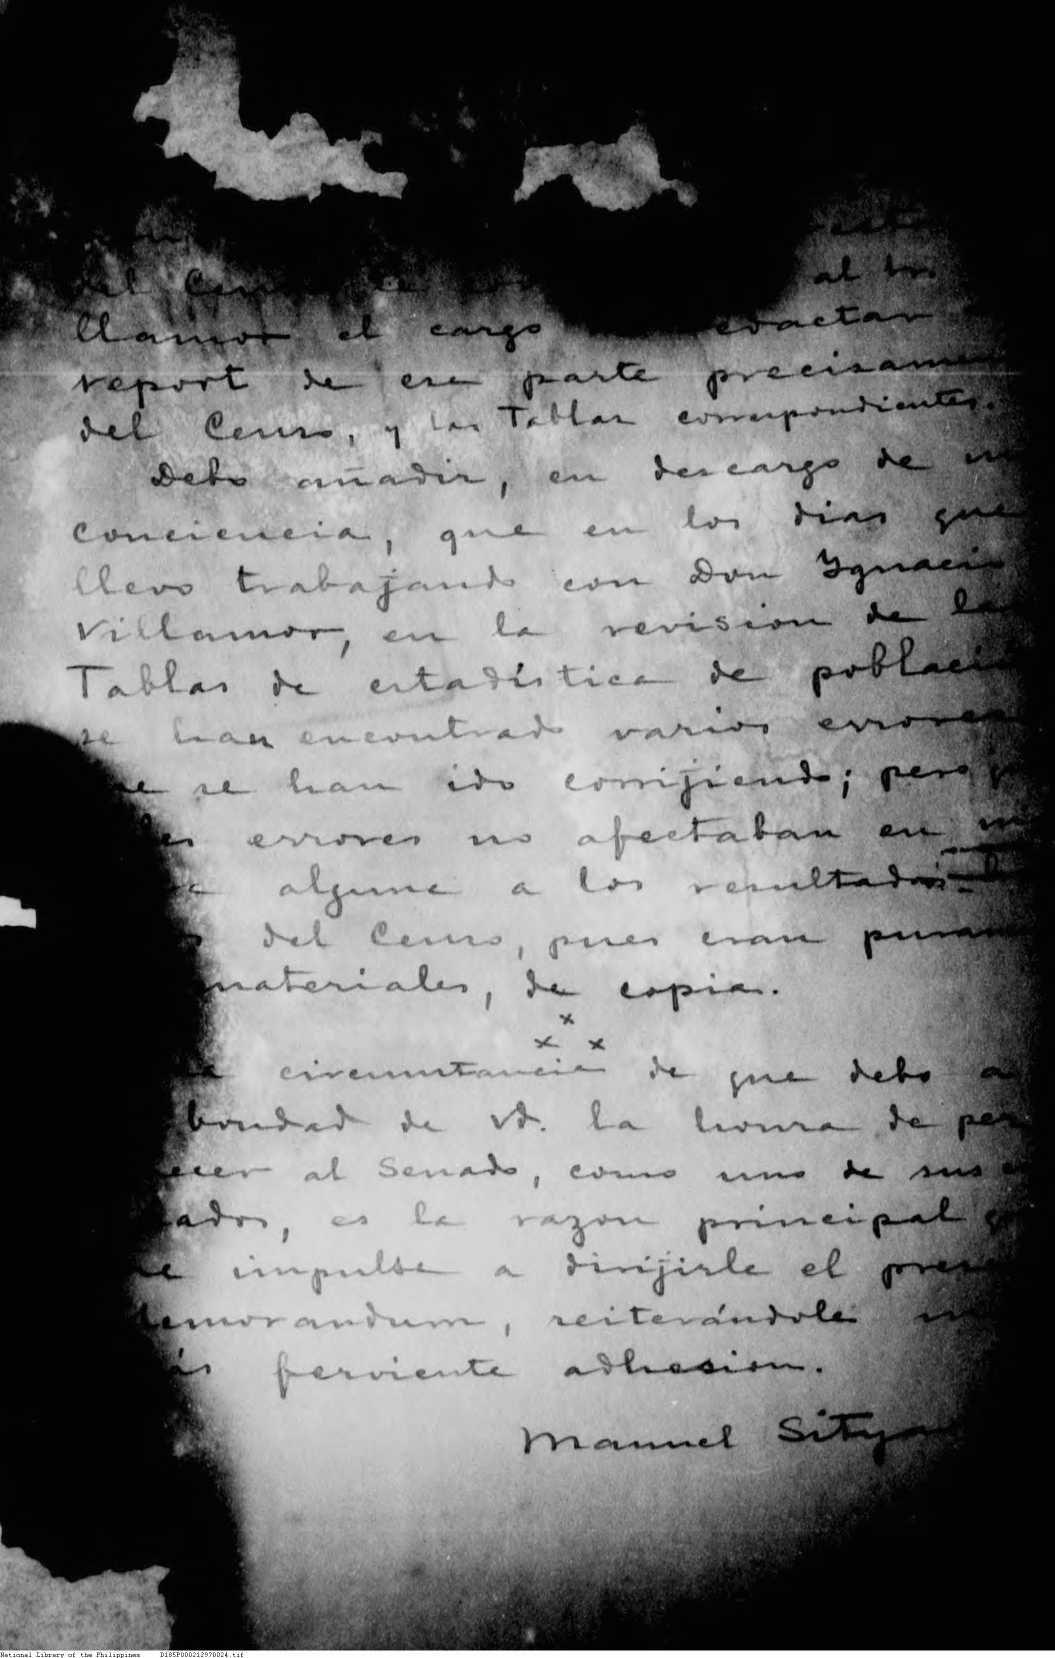 del al
llamor el cargo redactar
report de ese parte precisamen
del Censo, y las Tablas correspondientes.
Debo añadir, en descargo de
conciencia, que en los dias que
llevo trabajando con Don Ygnacio
Villamor, en la revision de la
Tablas de estadística de poblaci
se han encontrado varios errores
se han ido corrijiendo; pero
errores no afectaban en
alguna a los resultados
del Censo, pues eran puram
materiales, de copia.
x
x x
circunstancia de que debo a
bondad de Vd. la honra de per
ecer al Senado, como uno de sus
ados, es la razon principal
impulse a dirijirle el pres
emorandum, reiterándole
ferviente adhesion.
Manuel Sitya
National Library of the Philippines D185P000212970024.tif